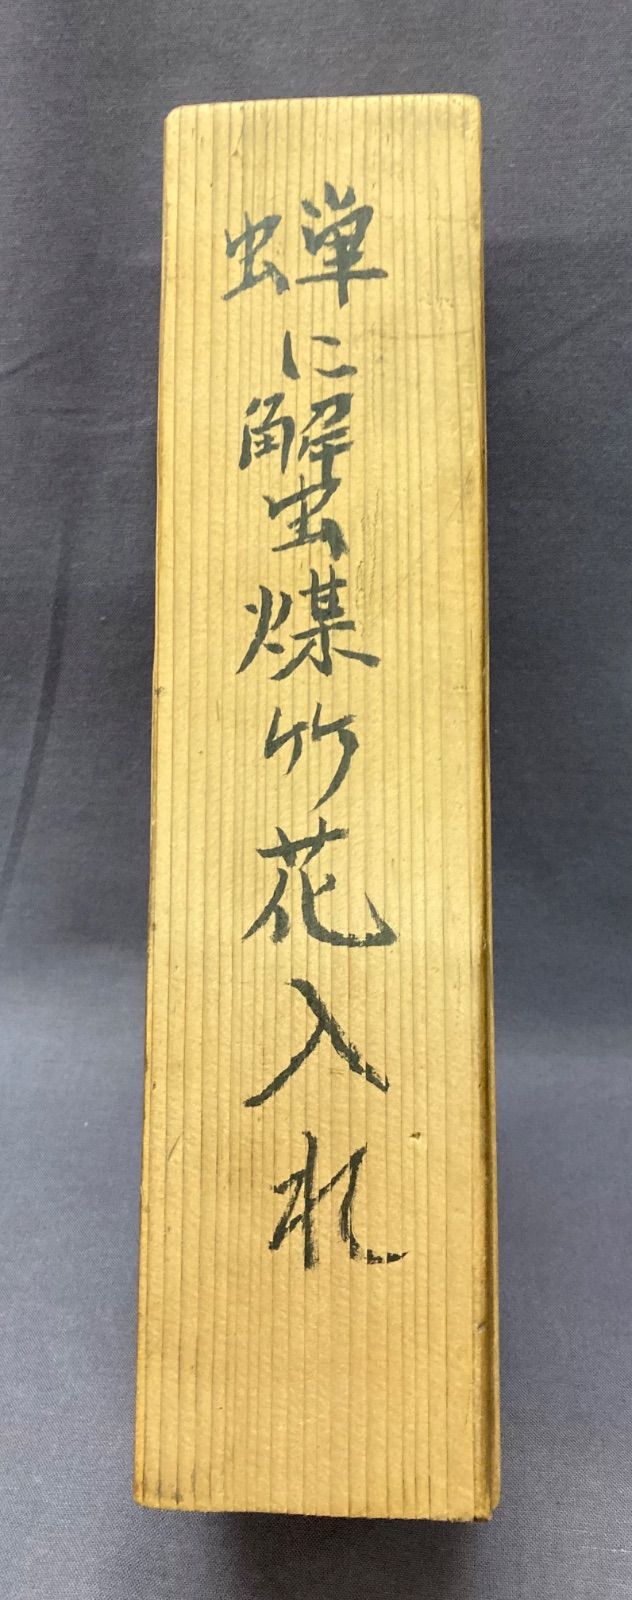 蝉に蟹煤竹花入れ